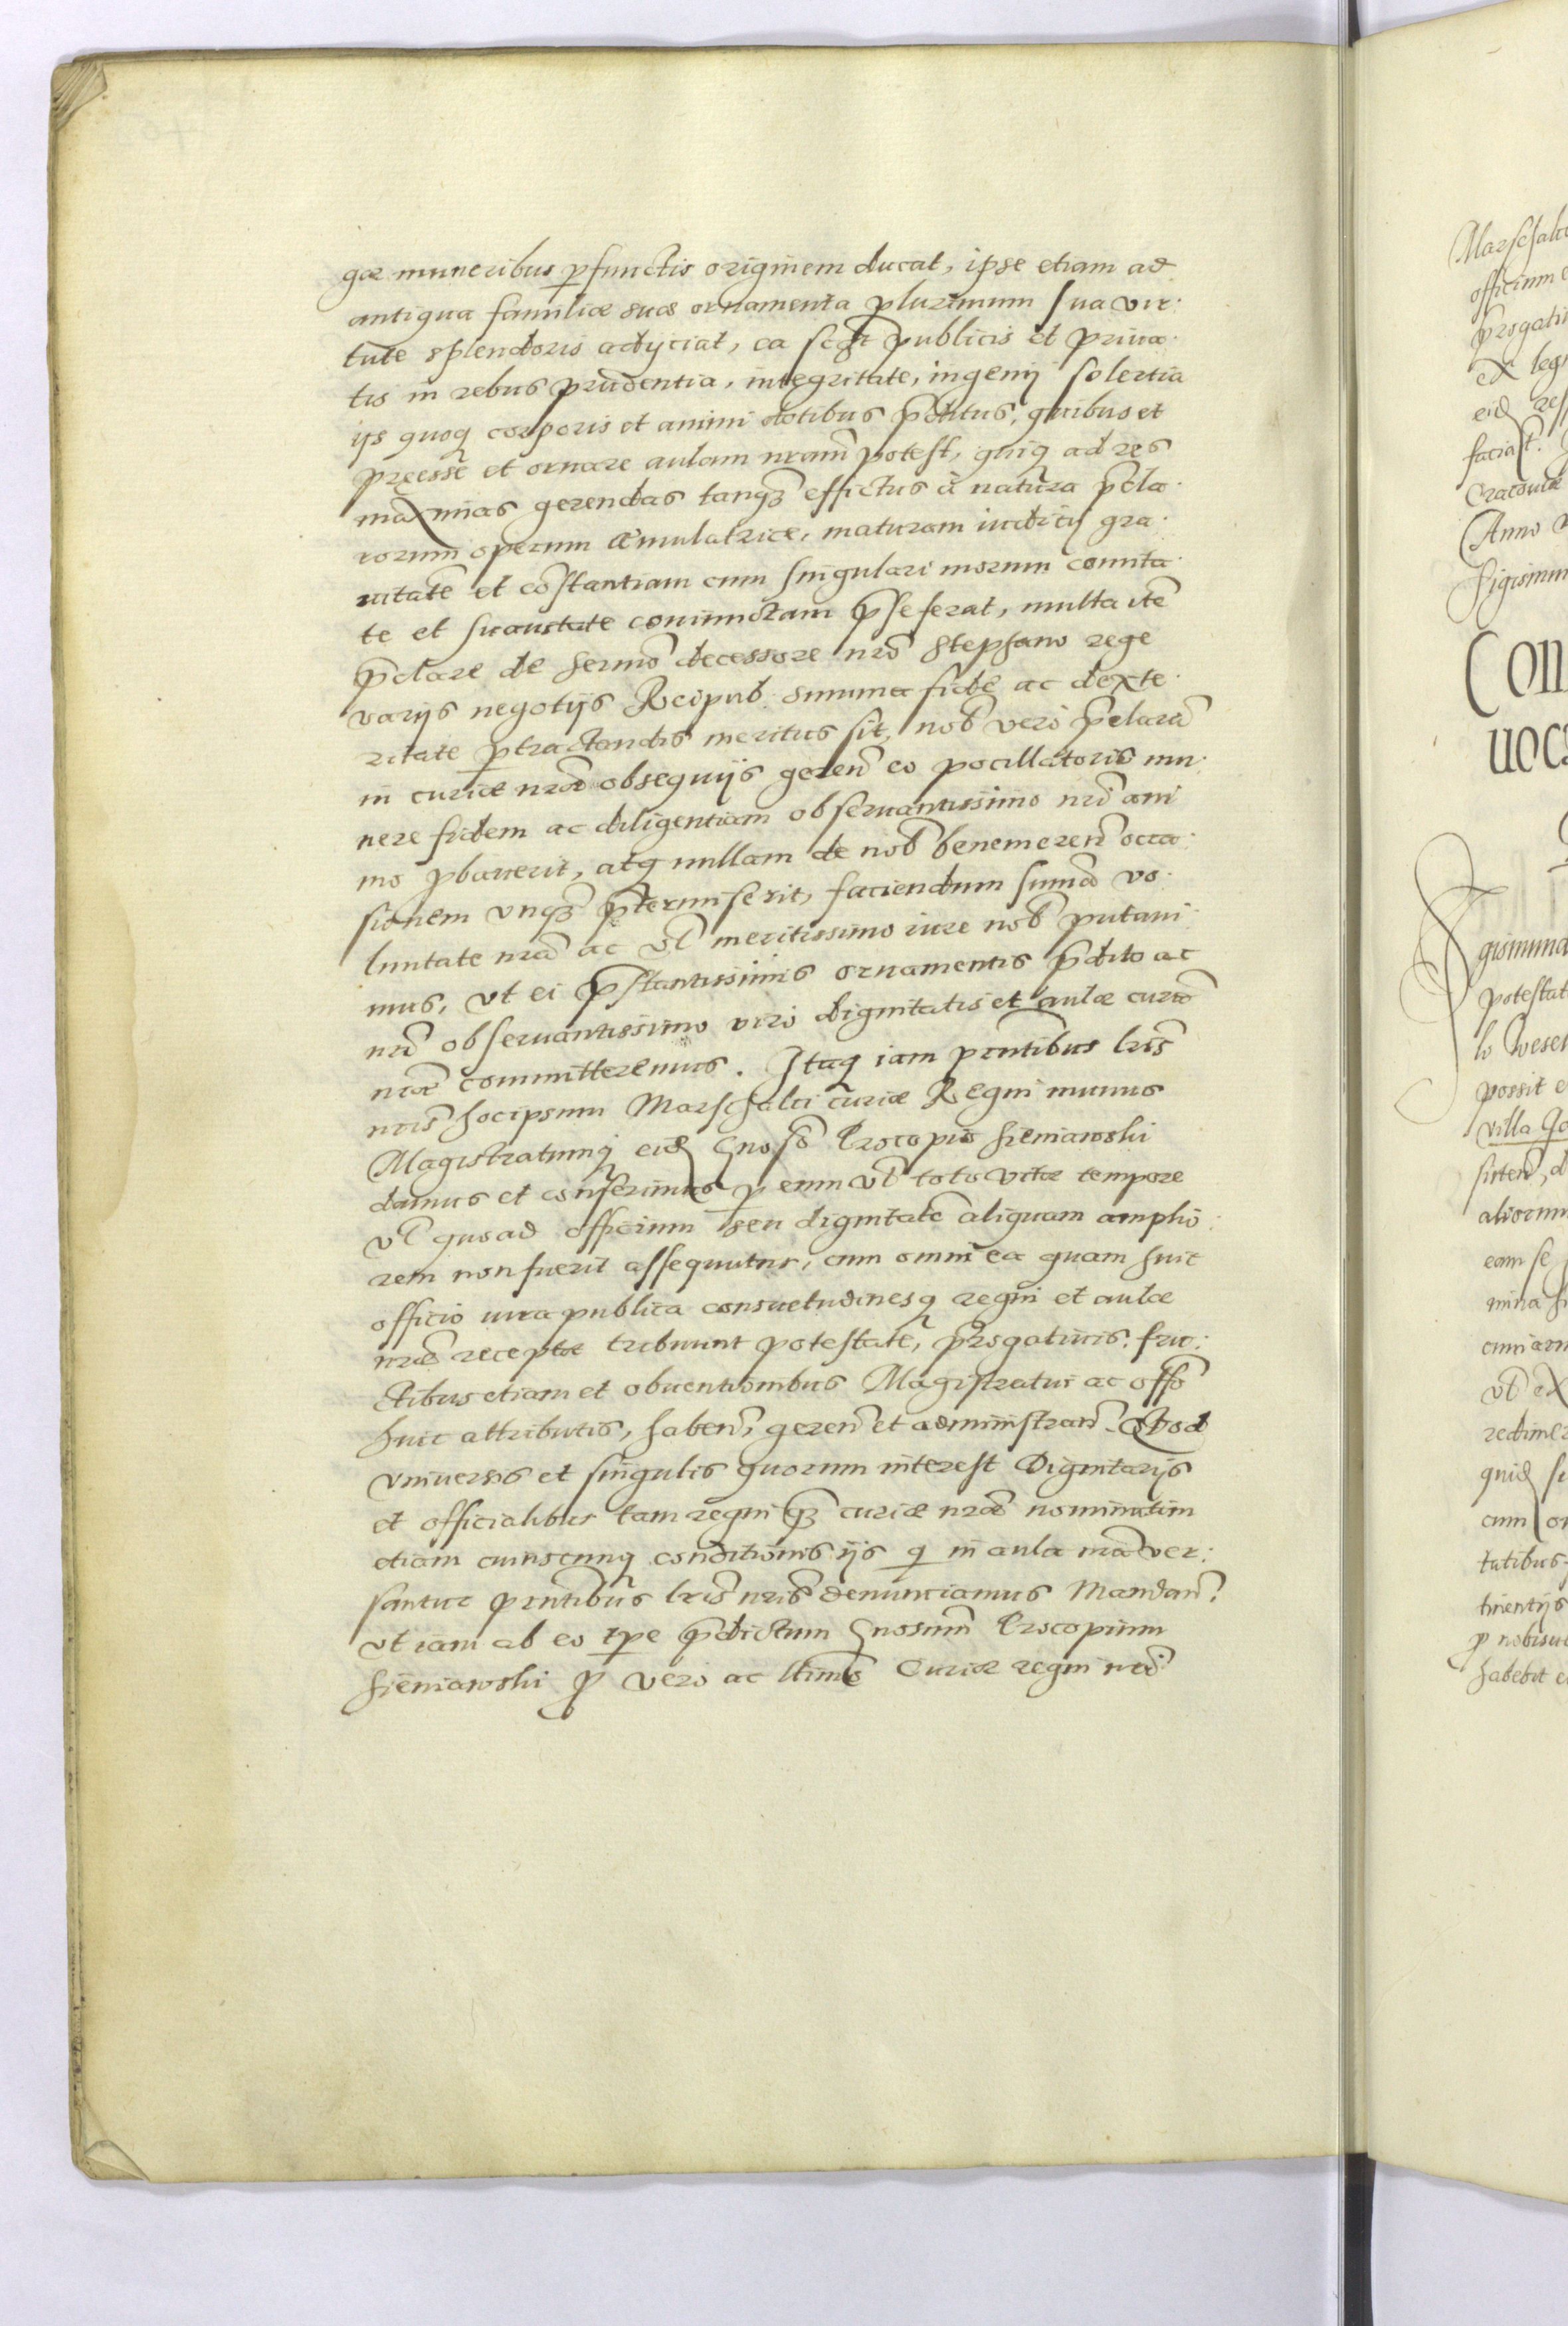 gae muneribus pfunctis originem ducat, ipse etiam ad
antiqua familiae suae ornamenta plurimum sua vir.
tute splendoris adijciat, ea scilt publicis et priua.
tis in rebus prudentia, integritate, ingenij solertia
ijs quoq corporis et animi dotibus pditus, quibus et
preesse et ornare aulam nram potest, quiq ad res
maximas gerendas tanqz effictus à natura pcla.
rorum operum aemulatrice, maturam iudicij gra.
uitate et constantiam cum singulari morum comita.
te et suauitate coniunctam pseferat, multa ite
pclare de sermo decessore nro Stephano rege
varijs negotijs Reipub: summa fide ac dexte.
ritate ptractandis meritus sit, nob vero pclara
in curiae nrae obsequijs geren eo pocillatoris mu.
nere fidem ac diligentiam obseruantissimo nri ani
mo pbauerit, atq nullam de nob benemeren occa.
sionem vnqz ptermiserit, faciendum summa vo.
luntate nra ac vt meritissimo iure nob putaui.
mus, vt ei pstantissimis ornamentis pdito ac
nri obseruantissimo viro dignitatis et aulae cura
nrae committeremus. Itaq iam pntibus lris
nris hocipsum Marschalci curiae Regni munus
Magistratumq eid Gnoso Procopio Sieniawski
damus et conferimus p eum vt toto vitae tempore
vt quoad officium seu dignitate aliquam amplio.
rem non fuerit assequutus, cum omni ea quam huic
officio iura publica consuetudinesq regni et aulae
nrae receptae tribuunt potestate, prrogatiuis, fru.
ctibus etiam et obuentionibus Magistratui ac offo
huic attributis, haben, geren et administran. Quod
vniuersis et singulis quorum interest Dignitarijs
et officialibus tam regni qz curiae nrae nominatim
etiam cuiuscunq conditionis ijs q in aula nra ver.
santur pntibus lris nris denunciamus Mandan.
vt iam ab eo tpe pdictum Gnosum Procopium
Sieniawski p vero ac ltimo Curiae regni nri
Marschalc
officium
prrogati
ex leg
eid
faciat.
Cracouiae
Anno
Sigismun
Con
uoc
gismund
potestat
possit e
villa Go
siten, d
aliorum
eam se
mina
redimer
quid
cum
tutibus
tinentijs
habebit e